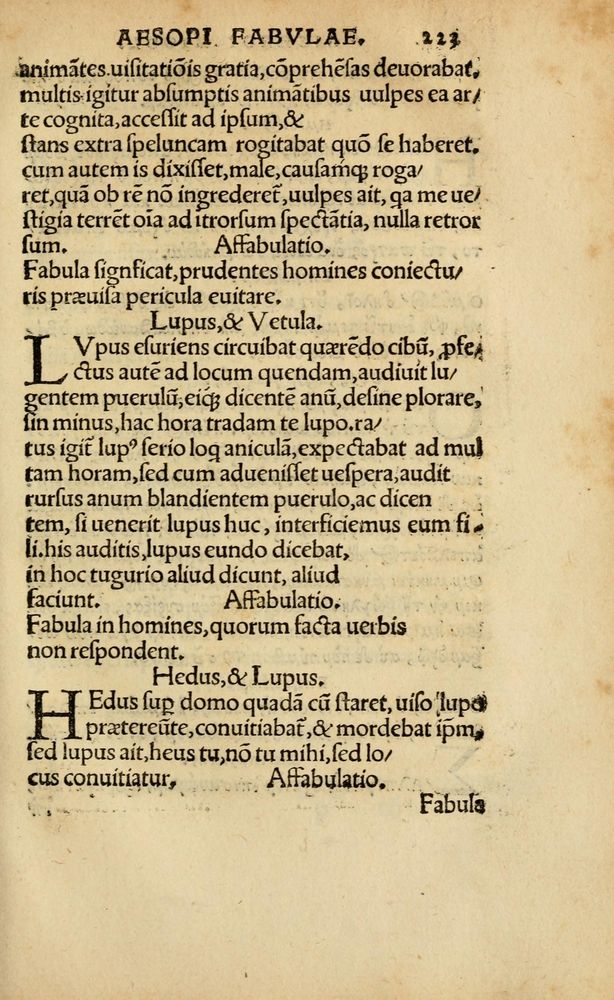 AESOPI FABVLAE. 223
animãtes.uiſitatiõis gratia,cõprehẽſas deuorabat.
multis igitur abſumptis animãtibus uulpes ea ar/
te cognita,acceſſit ad ipſum,&
ſtans extra ſpeluncam rogitabat quõ ſe haberet.
cum autem is dixiſſet,male,cauſamq́; roga/
ret,quã ob rẽ nõ ingrederet᷑,uulpes ait, ꝗa me ue/
ſtigia terrẽt oĩa ad ĩtrorſum ſpectãtia, nulla retror
ſum. Affabulatio.
Fabula ſignficat,prudentes homines coniectu/
ris præuiſa pericula euitare.
Lupus,& Vetula.
LVpus eſuriens circuibat quærẽdo cibũ, ꝓfe/
ctus autẽ ad locum quendam,audiuit lu/
gentem puerulũ,eiq́; dicentẽ anũ,deſine plorare,
ſin minus,hac hora tradam te lupo.ra/
tus igit᷑ lupꝰ ſerio loꝗ aniculã,expectabat ad mul
tam horam,ſed cum adueniſſet ueſpera,audit
rurſus anum blandientem puerulo,ac dicen
tem, ſi uenerit lupus huc, interficiemus eum fi
li.his auditis,lupus eundo dicebat,
in hoc tugurio aliud dicunt, aliud
faciunt. Affabulatio.
Fabula in homines,quorum facta uerbis
non reſpondent.
Hedus,& Lupus.
HEdus ſuꝑ domo quadã cũ ſtaret, uiſo lupo
prætereũte,conuitiabat᷑,& mordebat ip̃m,
ſed lupus ait,heus tu,nõ tu mihi,ſed lo/
cus conuitiatur. Affabulatio.
Fabula